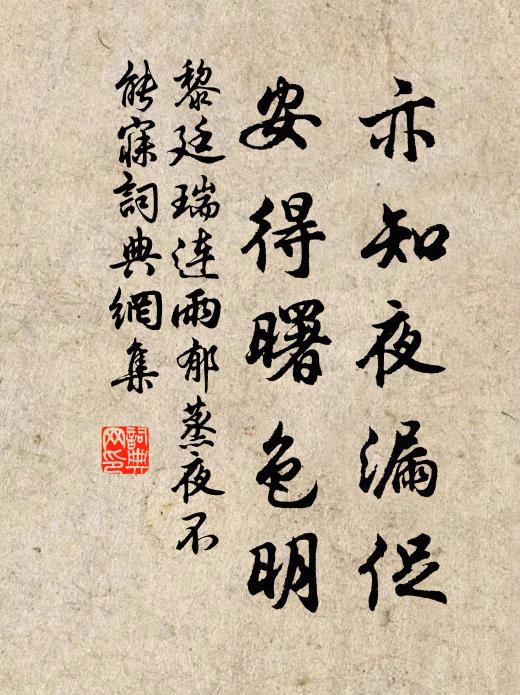 亦知夜漏促
安得曙色明
黎廷瑞连雨郁蒸夜不
能寐詞典網集
詞典网印